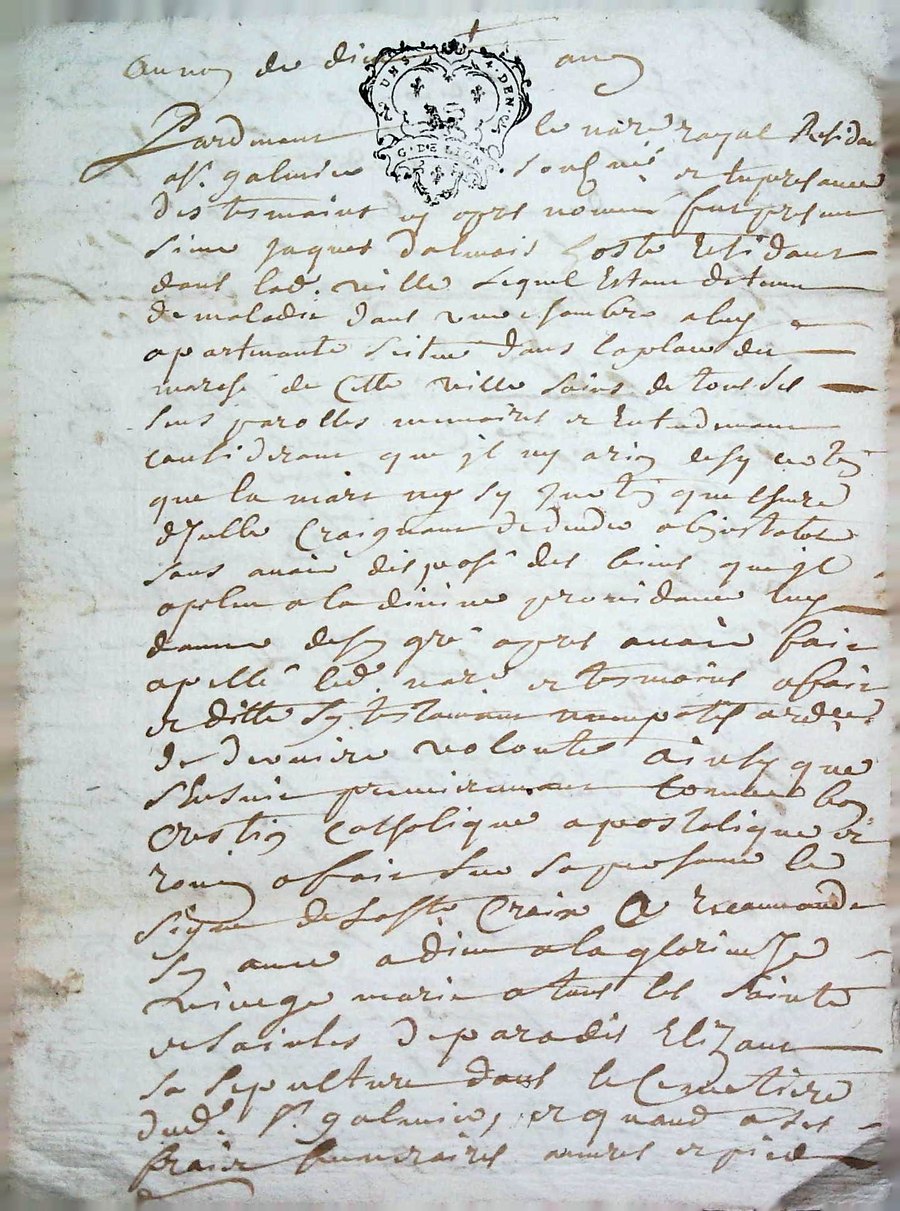 Au nom de dieu amen
UN S. 4. DEN.
G. DE LION
Pardevant le no.re royal Residan
a St. galmier soubsigné et en presance
des tesmoins cy apres nommé fut presan
sieur Jaques dalmais hoste Residant
dans lad. ville lequel Estant detenu
de maladie dans une chambre a luy
apartenante scitue dans la place du
marché de Cette ville sains de tous ses
sens parolles memoires et Entendement
considerant que jl ny a rien de sy certin
que la mort ny sy jncertin que lheure
dJcelle Craignant de deceder abjntestat
sans avoir disposé des biens quejl
a pleu a la divine providance luy
donner de son gré apres avoir fait
apellé led. no.re et tesmoins a fait
et ditté son testament nuncupatif et ordre
de derniere volonté ainsy que
sEnsuit premierement comme bon
Crestien Catholique apostolique et
romain a fait sur sa personne le
signe de la Ste Croix & recommandé
son ame a dieu a la glorieuse
vierge marie a tous les saints
et saintes de paradis Elizant
sa sepulture dans le Cemetiere
dud. St. galmier, et quand a ses
frais funeraires aumosnes et pied